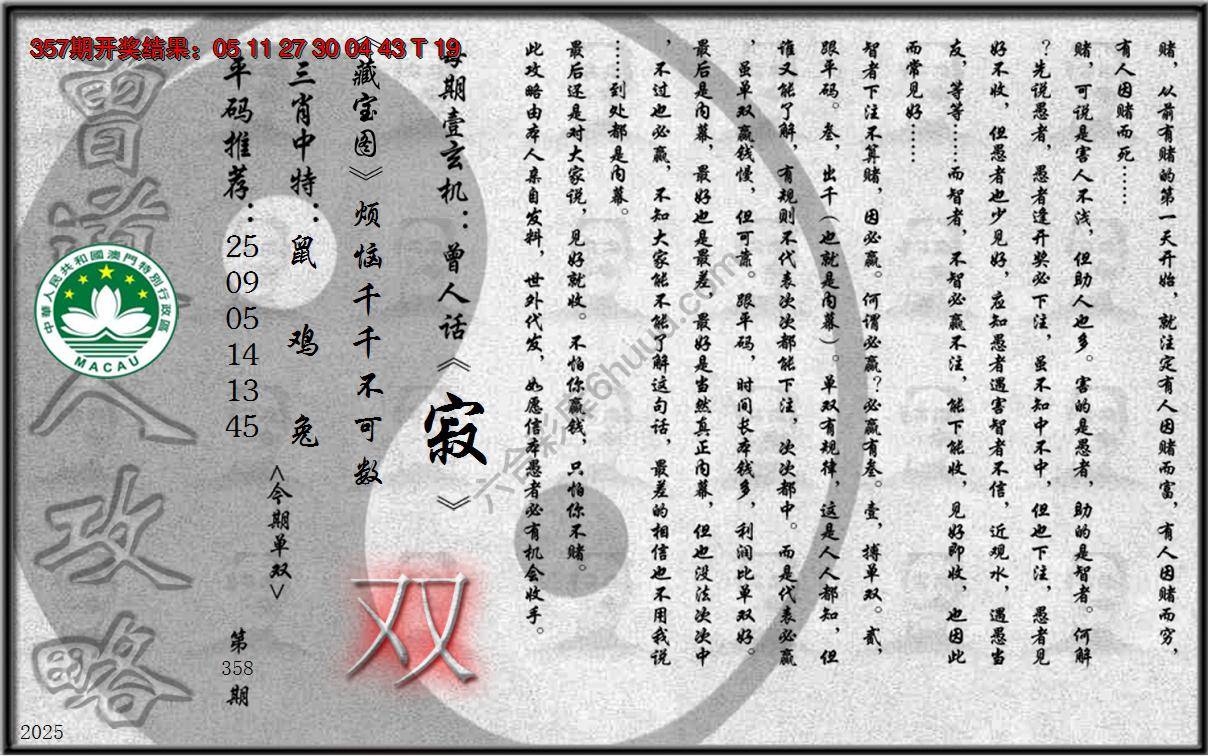 357期开奖结果：05 11 27 30 04 43 T 19
赌，从前有赌的第一天开始，就注定有人因赌而富，有人因赌而穷，
有人因赌而死……
赌，可说是害人不浅，但助人也多。害的是愚者，助的是智者。何解
？先说愚者，愚者逢开奖必下注，虽不知中不中，但也下注，愚者见
好不收，但愚者也少见好，应知愚者遇害智者不信，近观水，遇愚当
友，等等……而智者，不智必赢不注，能下能收，见好即收，也因此
而常见好……
智者下注不算赌，因必赢。何谓必赢？必赢有叁。壹，搏单双。贰，
跟平码。叁，出千（也就是内幕）。单双有规律，这是人人都知，但
谁又能了解，有规则不代表次次都能下注，次次都中。而是代表必赢
，虽单双赢钱慢，但可靠。跟平码，时间长本钱多，利润比单双好。
最后是内幕，最好也是最差，最好是当然真正内幕，但也没法次次中
，不过也必赢，不知大家能不能了解这句话，最差的相信也不用我说
……到处都是内幕。
最后还是对大家说，见好就收。不怕你赢钱，只怕你不赌。
此攻略由本人亲自发料，世外代发，如愿信本愚者必有机会收手。
每期壹玄机：曾人话《寂》
《藏宝图》烦恼千千不可数
双
三肖中特：鼠 鸡 兔
<今期单双>
平码推荐：25 09 05 14 13 45
第358期
曾道人攻略
中華人民共和國澳門特別行政區
MACAU
六合彩库6huuu.com
2025